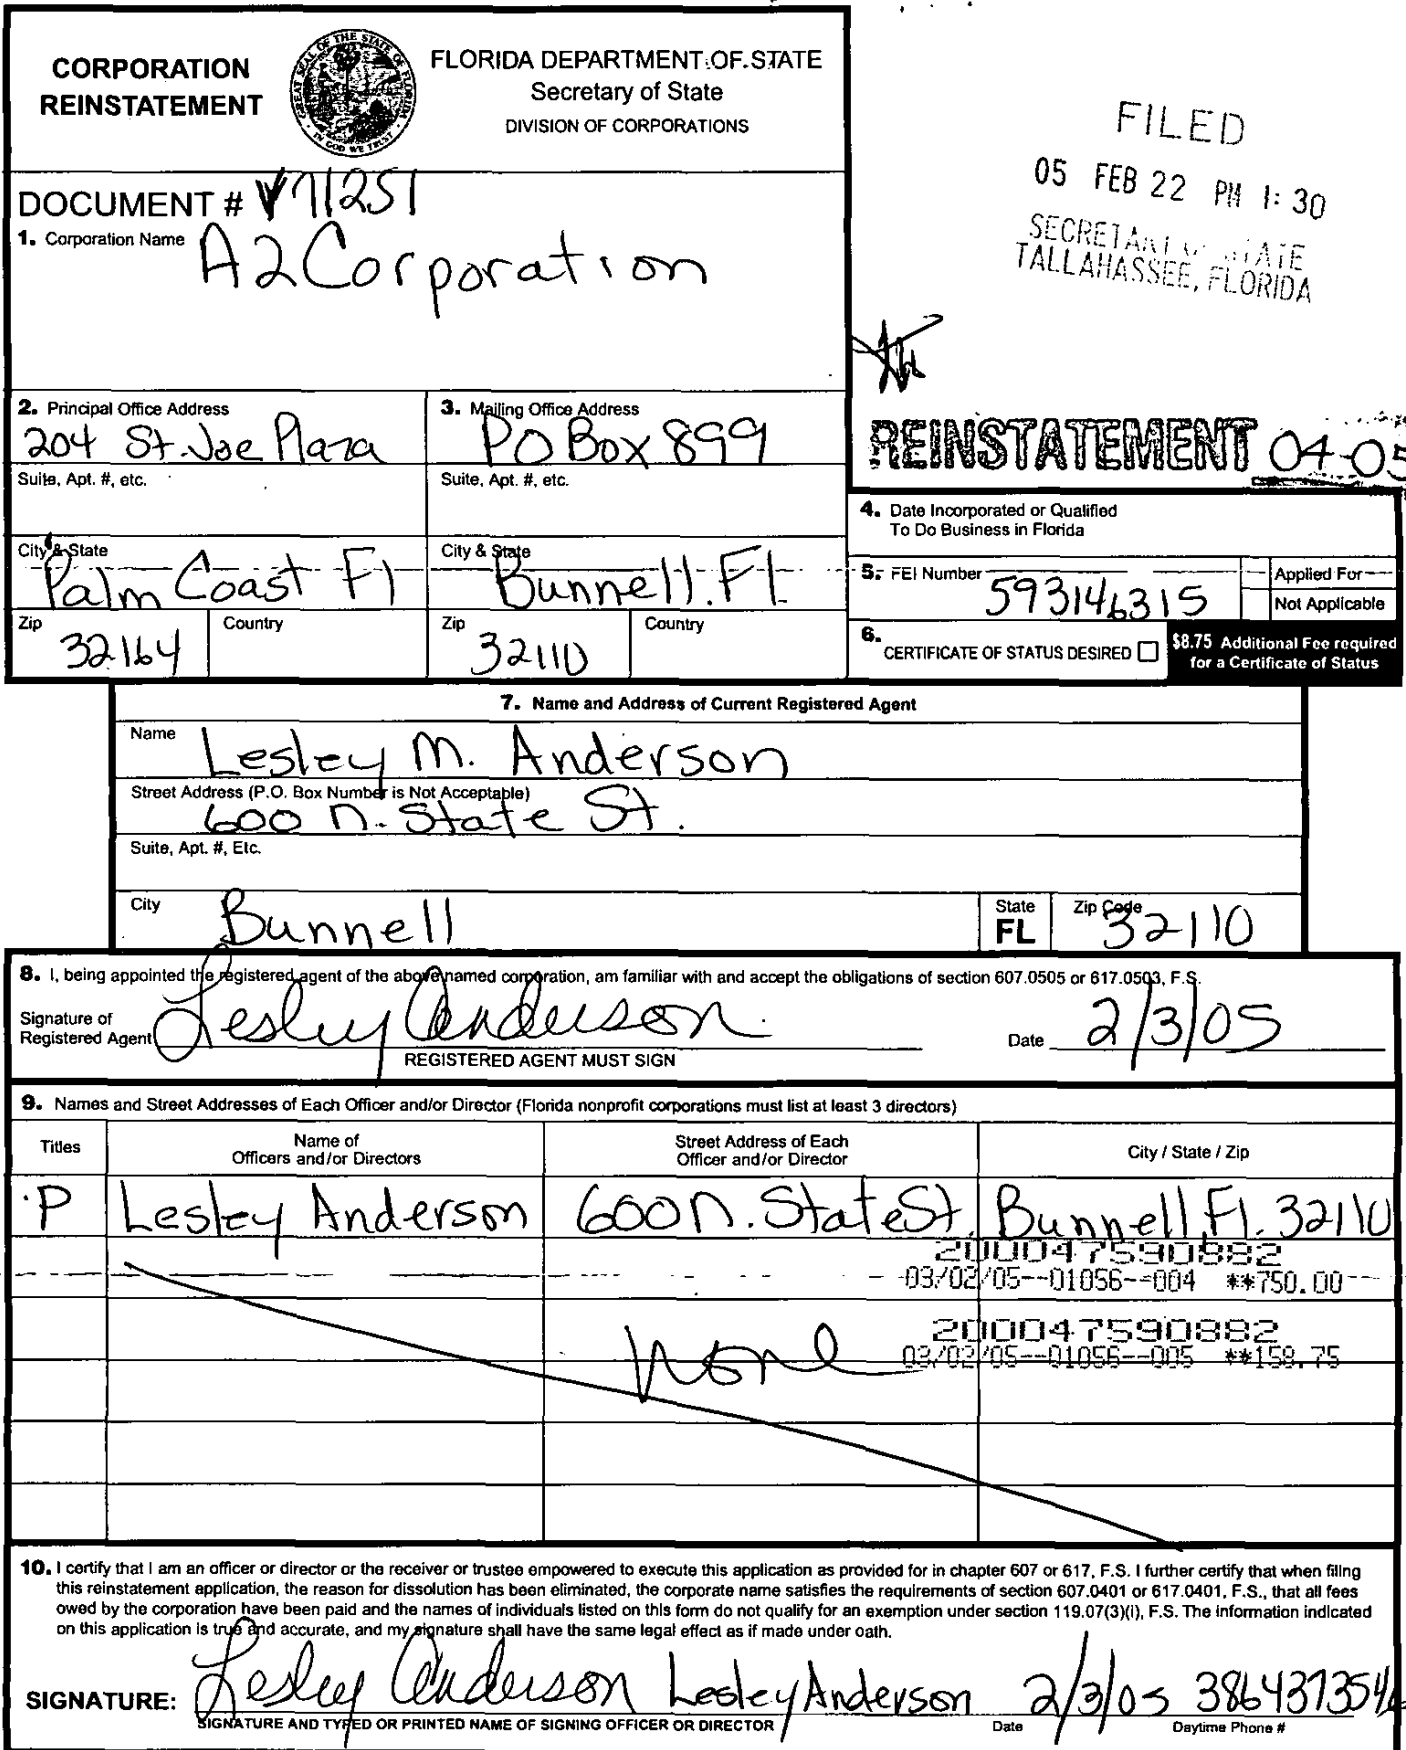 CORPORATION
REINSTATEMENT
GREAT SEAL OF THE STATE OF FLORIDA
IN GOD WE TRUST
FLORIDA DEPARTMENT OF STATE
Secretary of State
DIVISION OF CORPORATIONS
FILED
05 FEB 22 PM 1:30
SECRETARY OF STATE
TALLAHASSEE, FLORIDA
DOCUMENT # V71251
1. Corporation Name A2 Corporation
2. Principal Office Address
204 St. Joe Plaza
3. Mailing Office Address
PO Box 899
REINSTATEMENT 04-05
Suite, Apt. #, etc.
Suite, Apt. #, etc.
4. Date Incorporated or Qualified
To Do Business in Florida
City & State
Palm Coast Fl
City & State
Bunnell, Fl.
5. FEI Number
593146315
Applied For
Not Applicable
Zip
32164
Country
Zip
32110
Country
6. CERTIFICATE OF STATUS DESIRED
$8.75 Additional Fee required
for a Certificate of Status
7. Name and Address of Current Registered Agent
Name
Lesley M. Anderson
Street Address (P.O. Box Number is Not Acceptable)
600 N. State St.
Suite, Apt. #, Etc.
City
Bunnell
State
FL
Zip Code
32110
8. I, being appointed the registered agent of the above named corporation, am familiar with and accept the obligations of section 607.0505 or 617.0503, F.S.
Signature of
Registered Agent Lesley Anderson
Date 2/3/05
REGISTERED AGENT MUST SIGN
9. Names and Street Addresses of Each Officer and/or Director (Florida nonprofit corporations must list at least 3 directors)
Titles
Name of
Officers and/or Directors
Street Address of Each
Officer and/or Director
City / State / Zip
P Lesley Anderson 600 N. State St. Bunnell, Fl. 32110
200047590882
03/02/05--01056--004 **750.00
200047590882
03/02/05--01056--005 **158.75
None
10. I certify that I am an officer or director or the receiver or trustee empowered to execute this application as provided for in chapter 607 or 617, F.S. I further certify that when filing
this reinstatement application, the reason for dissolution has been eliminated, the corporate name satisfies the requirements of section 607.0401 or 617.0401, F.S., that all fees
owed by the corporation have been paid and the names of individuals listed on this form do not qualify for an exemption under section 119.07(3)(i), F.S. The information indicated
on this application is true and accurate, and my signature shall have the same legal effect as if made under oath.
SIGNATURE: Lesley Anderson Lesley Anderson 2/3/05 3864373546
SIGNATURE AND TYPED OR PRINTED NAME OF SIGNING OFFICER OR DIRECTOR
Date
Daytime Phone #